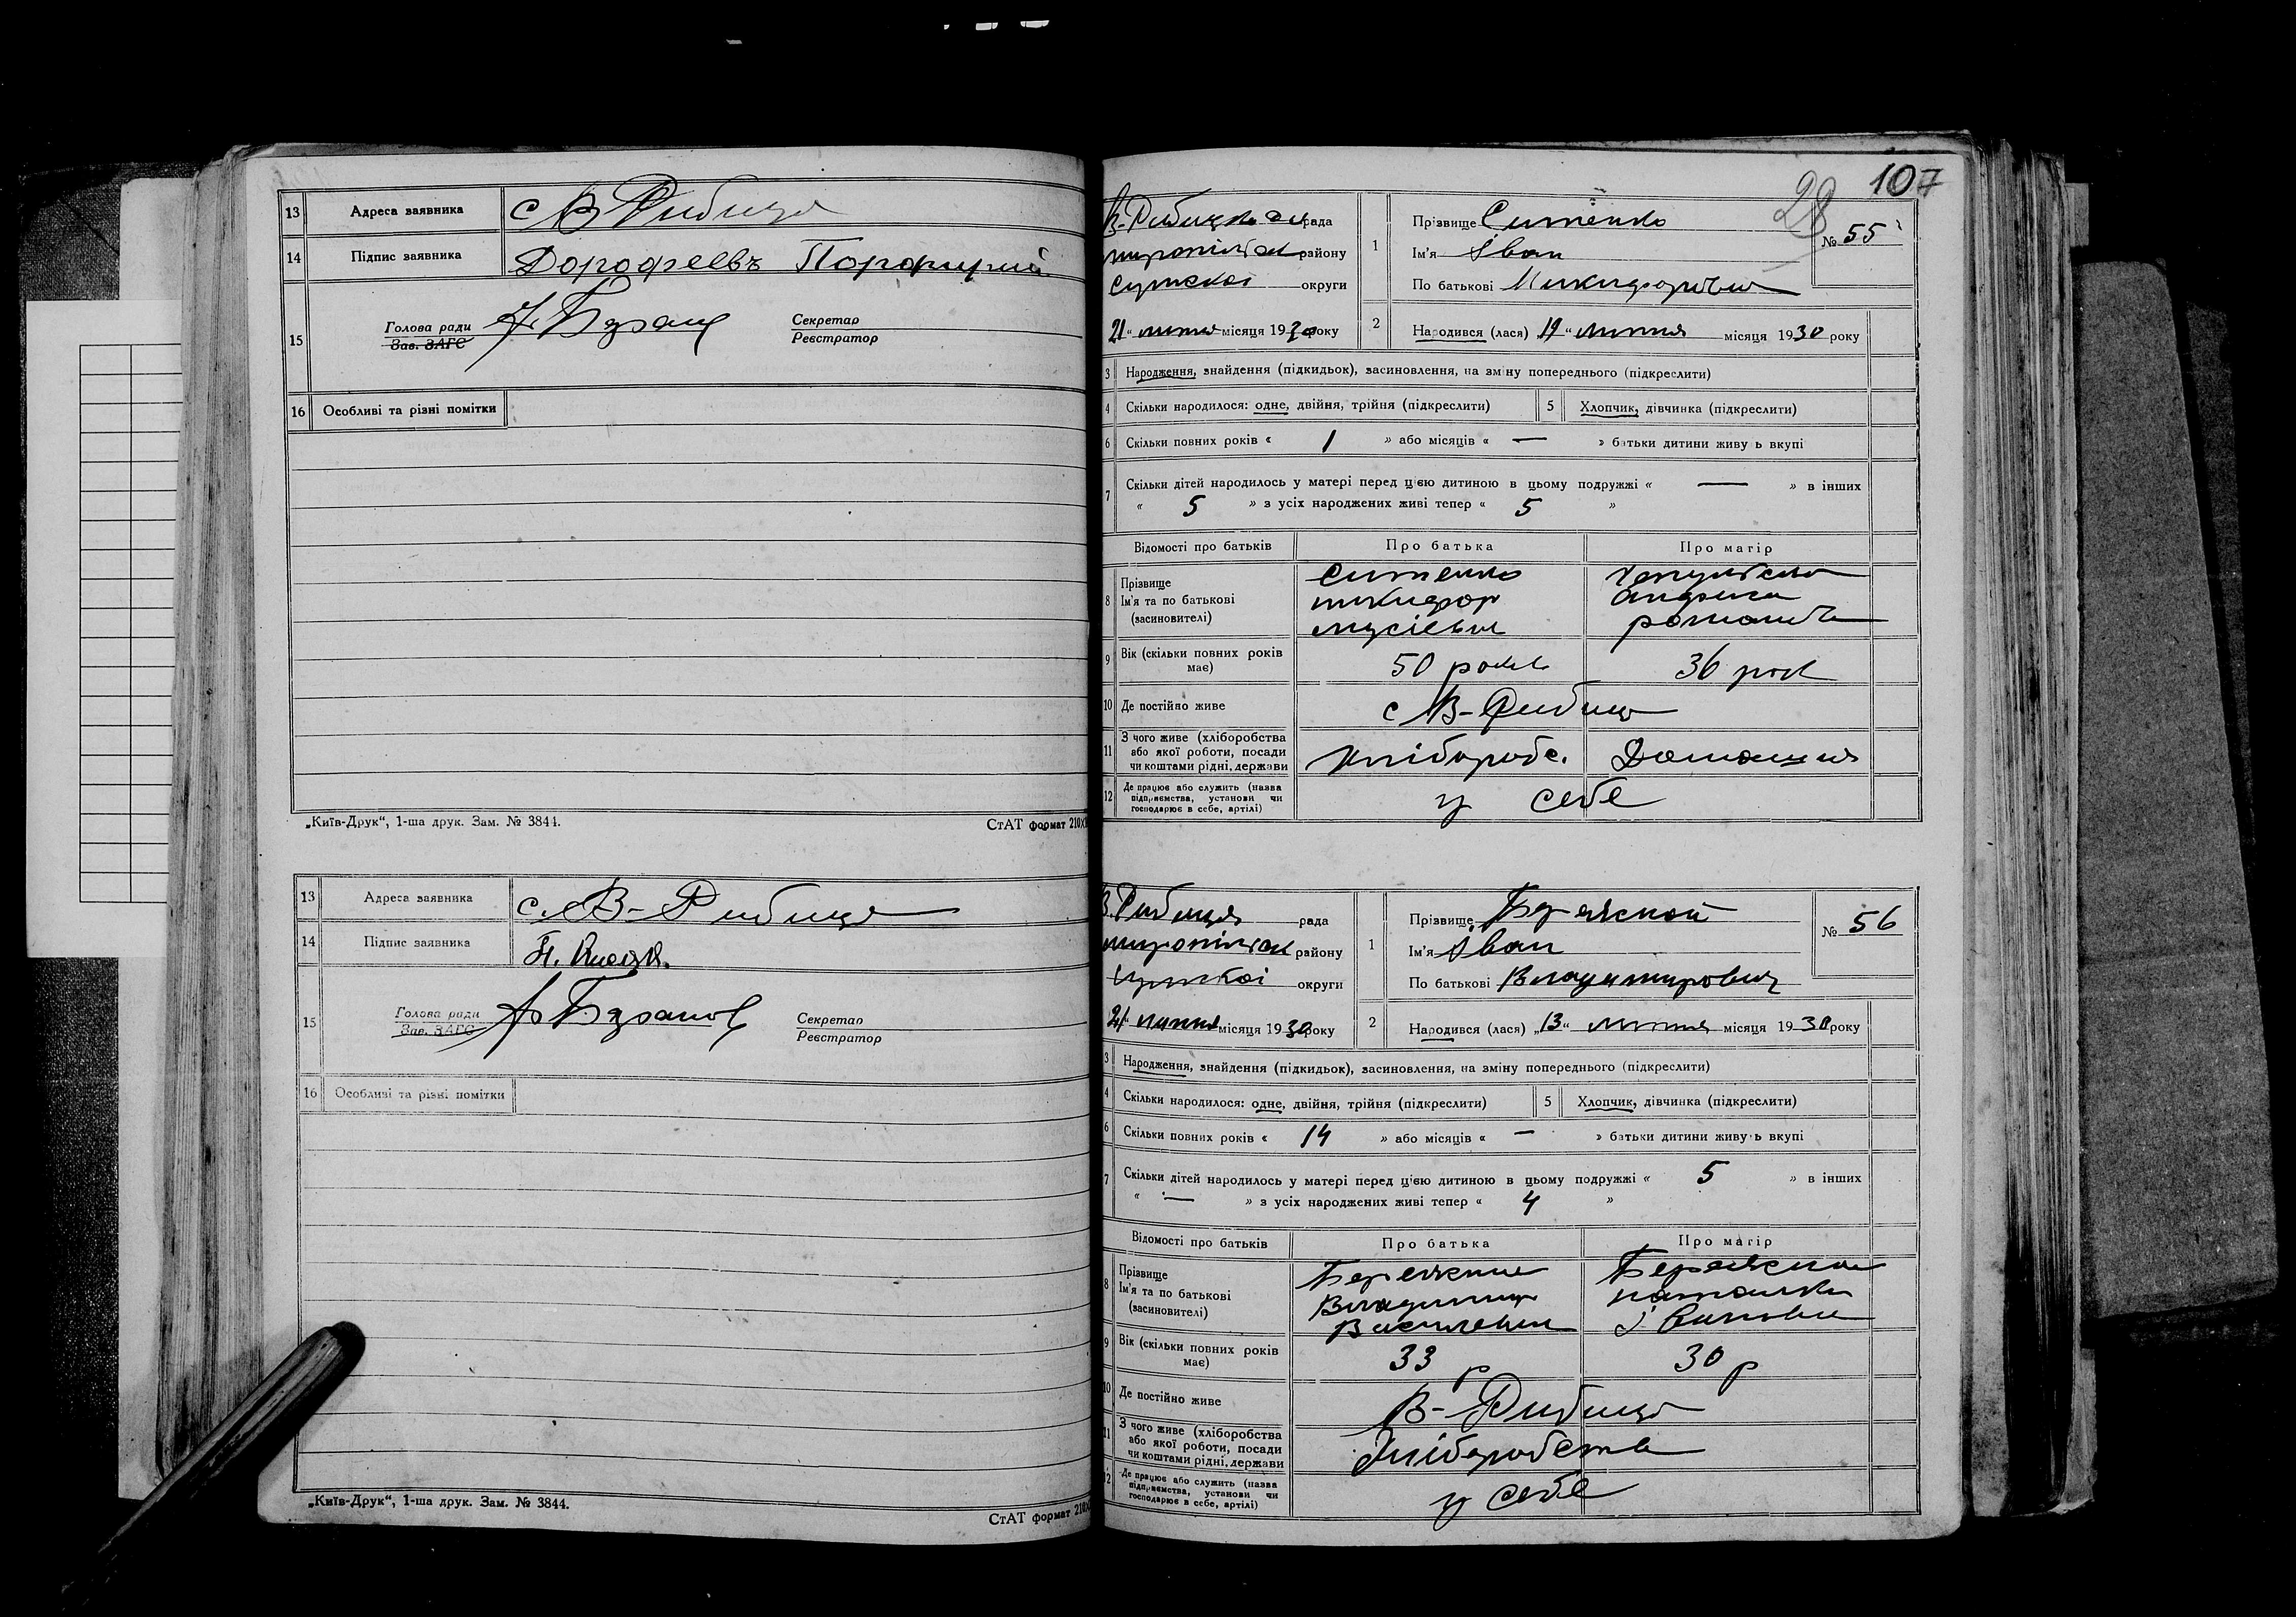 13 Адреса заявника с В Рибиця
14 Підпис заявника Дорофеевъ Порфирий
15 Голова ради
Зав. ЗАГС
Секретар
Реєстратор
16 Особливі та різні помітки
„Київ-Друк“, 1-ша друк. Зам. № 3844. СтАТ формат 210X
13 Адреса заявника с. В-Рибиця
14 Підпис заявника
15 Голова ради
Зав. ЗАГС
Секретар
Реєстратор
16 Особливі та різні помітки
„Київ-Друк“, 1-ша друк. Зам. № 3844.
СтАТ формат 210X
28 107
рада
району
Сумської округи
21 “ липня місяця 1930 року
1 Прізвище Ситенко
Ім'я Іван
По батькові Микифорович
№ 55
2 Народився (лася) „19“ липня місяця 1930 року
3 Народження, знайдення (підкидьок), засиновлення, на зміну попереднього (підкреслити)
4 Скільки народилося: одне, двійня, трійня (підкреслити) 5 Хлопчик, дівчинка (підкреслити)
6 Скільки повних років « 1 » або місяців « — » батьки дитини живуь вкупі
7 Скільки дітей народилось у матері перед цією дитиною в цьому подружжі « — » в інших
« 5 » з усіх народжених живі тепер « 5 »
Відомості про батьків Про батька Про матір
8 Прізвище
Ім'я та по батькові
(засиновителі)
Ситенко
микифор
мусієвич
романівна
9 Вік (скільки повних років має) 50 років 36 рок
10 Де постійно живе с В-Рибиця
11 З чого живе (хліборобства
або якої роботи, посади
чи коштами рідні, держави
хлібороб с. Домашня
12 Де працює або служить (назва
підприємства, установи чи
господарює в себе, артілі)
у себе
В. Рибиця рада
району
Сумської округи
21“ липня місяця 1930 року
1 Прізвище
Ім'я Іван
По батькові Владимирович
№ 56
2 Народився (лася) „13“ липня місяця 1930 року
3 Народження, знайдення (підкидьок), засиновлення, на зміну попереднього (підкреслити)
4 Скільки народилося: одне, двійня, трійня (підкреслити) 5 Хлопчик, дівчинка (підкреслити)
6 Скільки повних років « 14 » або місяців « — » батьки дитини живуь вкупі
7 Скільки дітей народилось у матері перед цією дитиною в цьому подружжі « 5 » в інших
« — » з усіх народжених живі тепер « 4 »
Відомості про батьків Про батька Про матір
8 Прізвище
Ім'я та по батькові
(засиновителі)
Владимир
Василевич
Наталка
Івановна
9 Вік (скільки повних років має) 33 р 30 р
10 Де постійно живе В-Рибиця
11 З чого живе (хліборобства
або якої роботи, посади
чи коштами рідні, держави
Хліборобства
12 Де працює або служить (назва
підприємства, установи чи
господарює в себе, артілі)
у себе